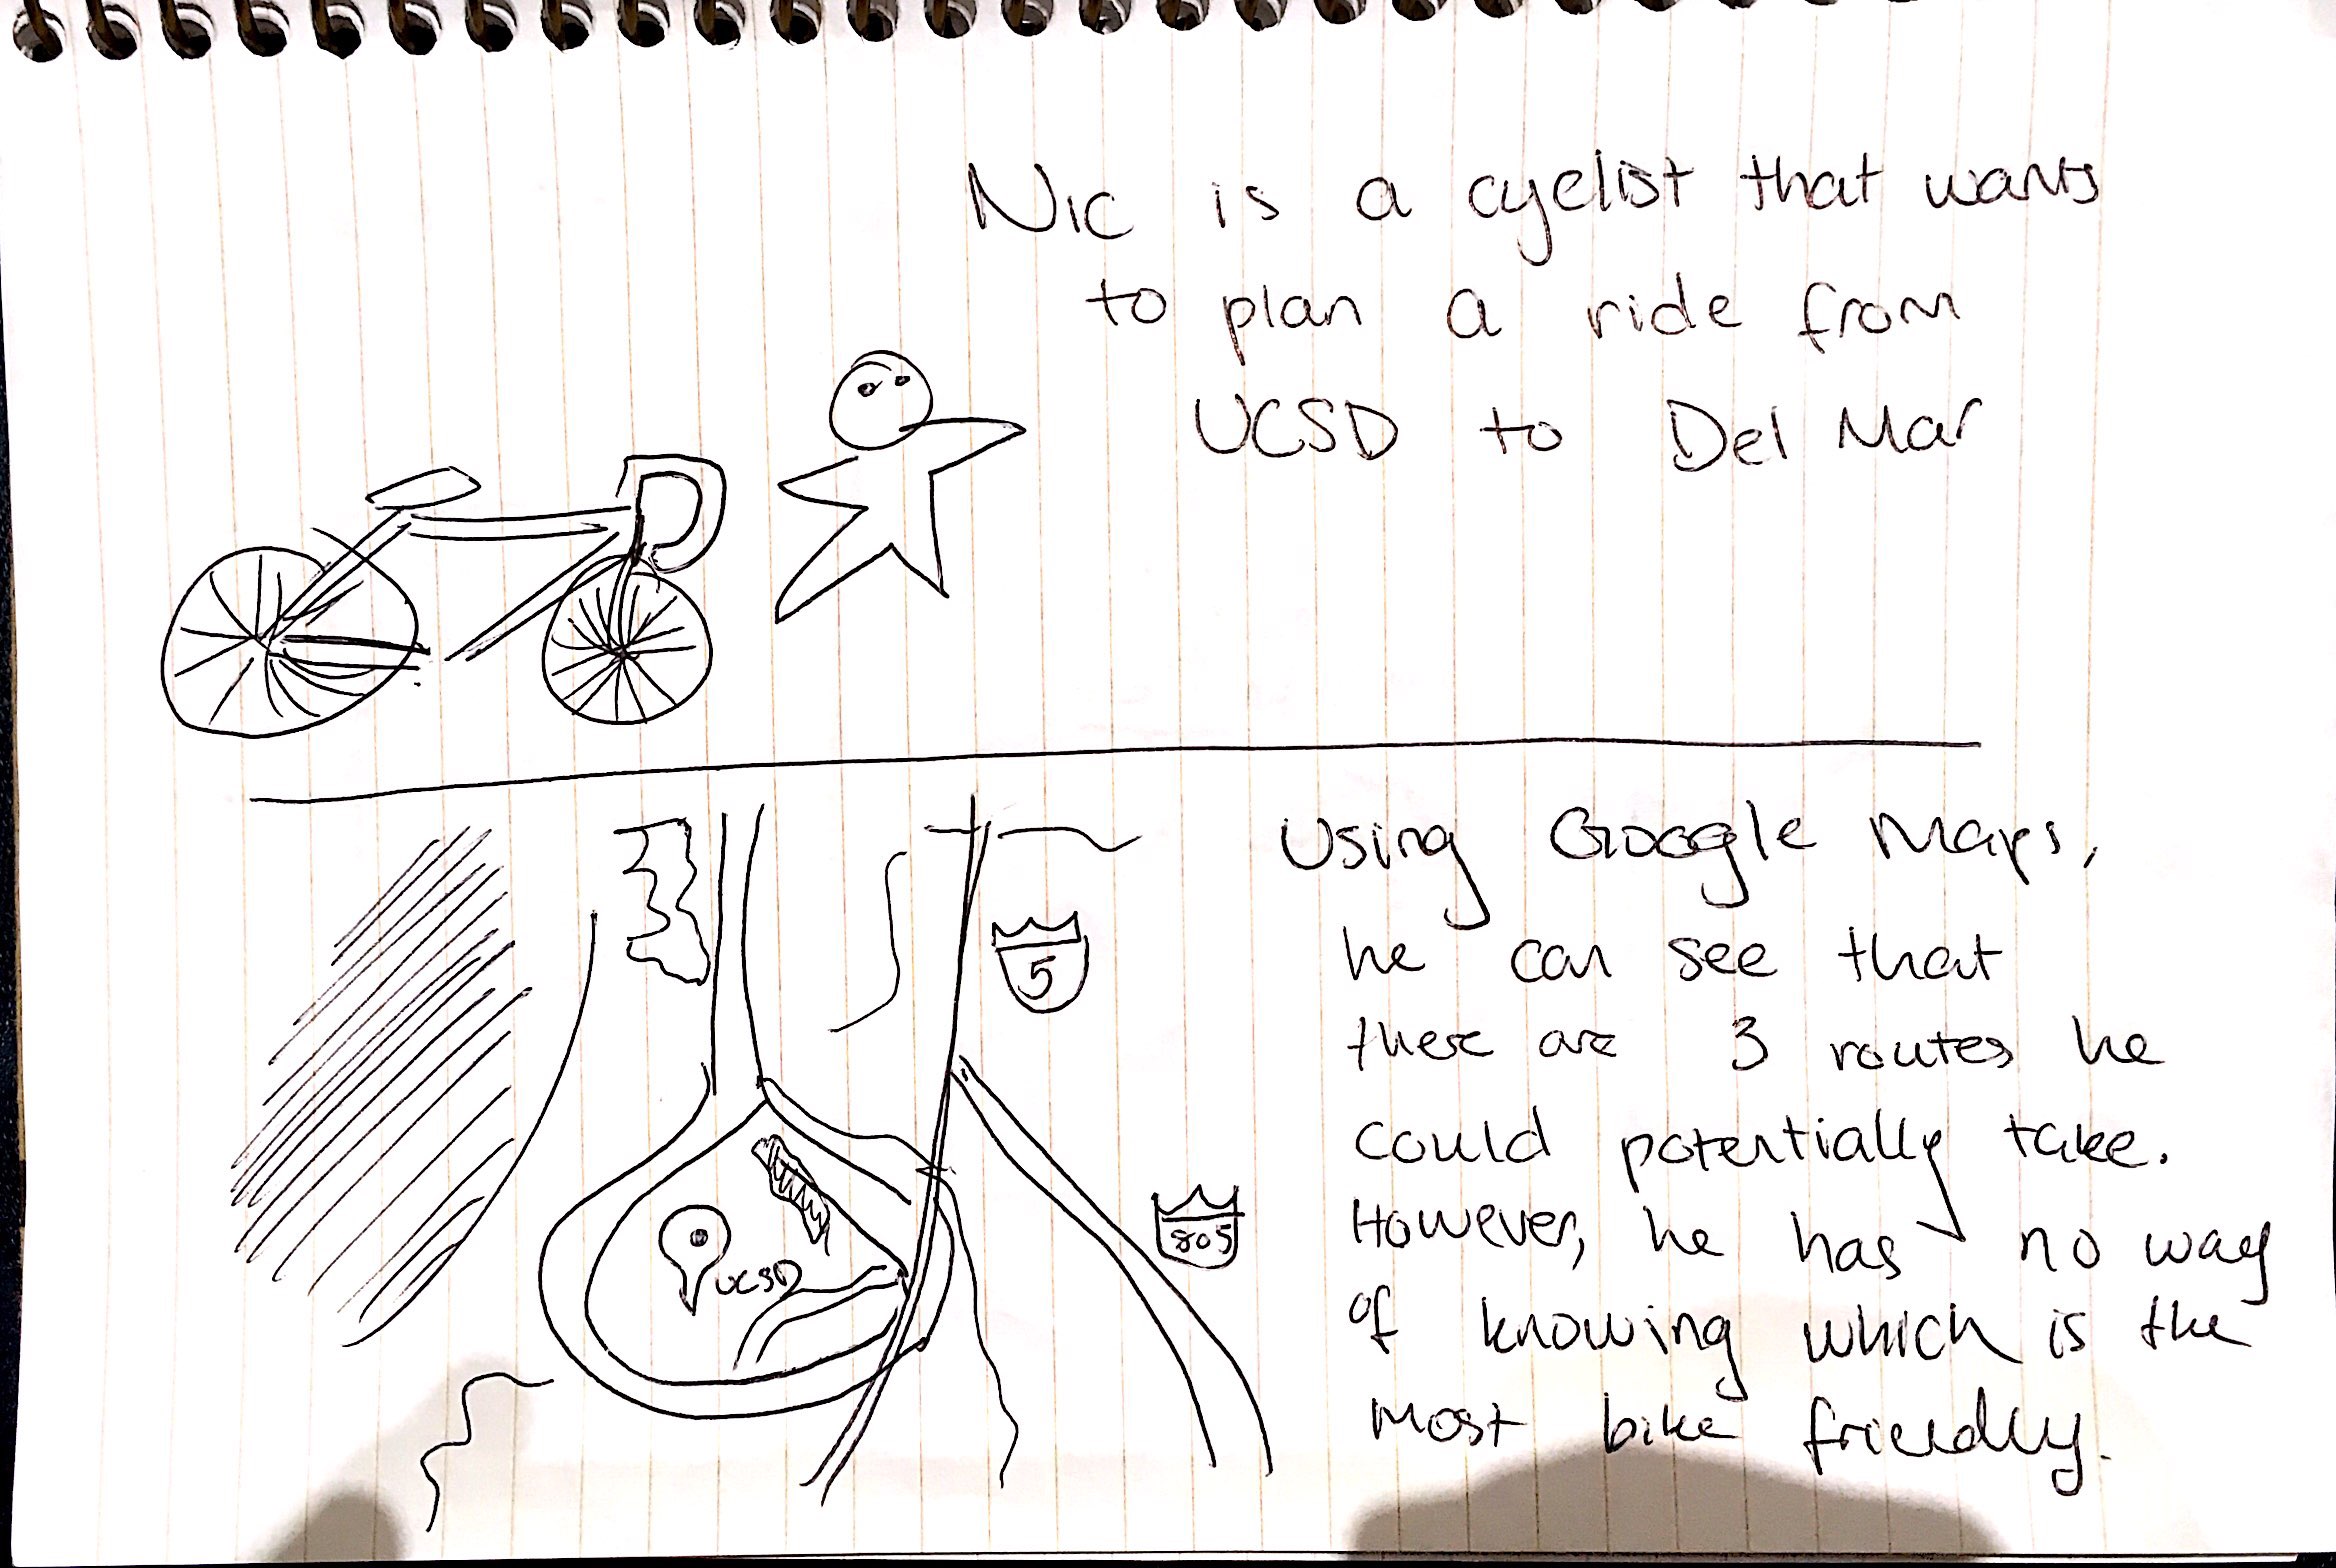 Nic is a cyclist that wants
to plan a ride from
UCSD to Del Mar
Using Google Maps,
he can see that
there are 3 routes he
could potentially take.
However, he has no way
of knowing which is the
most bike friendly.
5
805
UCSD